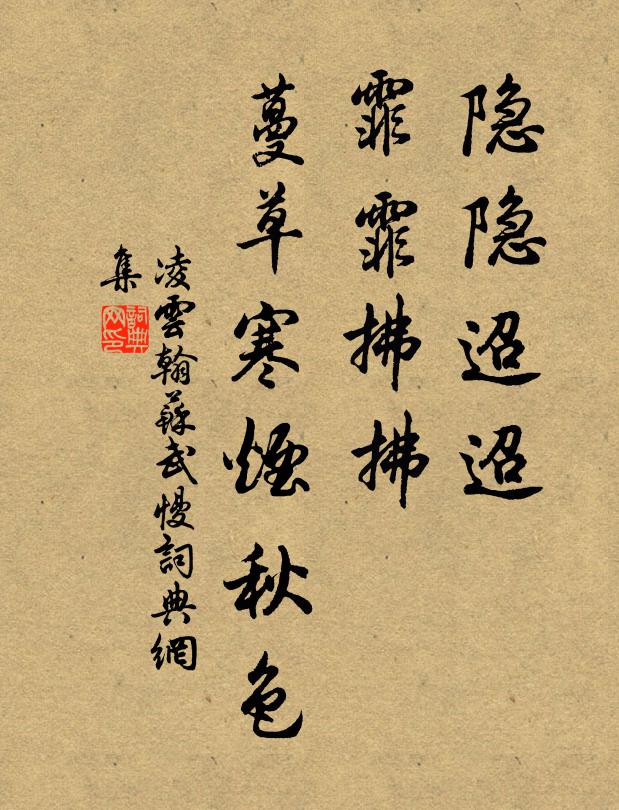 隐隐迢迢
霏霏拂拂
蔓草寒煙秋色
凌雲翰蘇武慢詞典網
集
詞典
网印